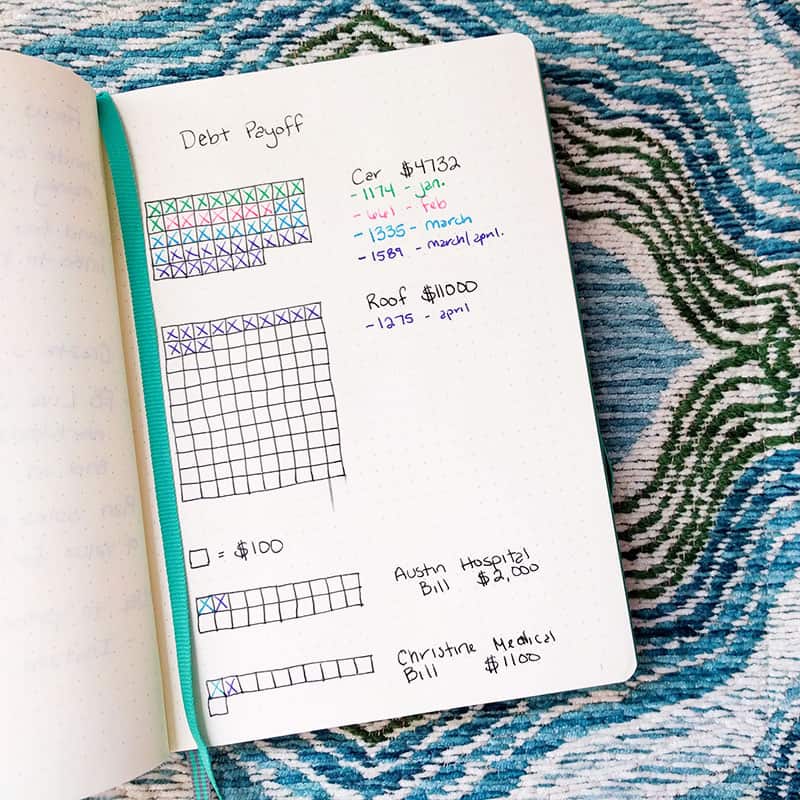 Debt Payoff
Car $4732
-1174 - jan.
-661 - feb
-1335 - march
-1589 - march/april.
Roof $11000
-1275 - april
= $100
Austin Hospital
Bill $2,000
Christine Medical
Bill $1100